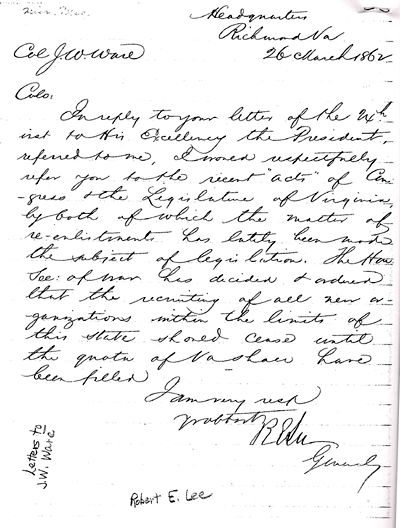 Headquarters
Richmond Va
26 March 1862
Col J. W. Ware
Colo:
In reply to your letter of the 24th
inst to His Excellency the President,
referred to me, I would respectfully
refer you to the recent "acts" of Con
-gress & the Legislature of Virginia,
by both of which the matter of
re-enlistments has lately been made
the subject of legislation. The Hon
Sec: of War has decided & ordered
that the recruiting of all new or-
ganizations within the limits of
this State should cease until
the quota of Va shall have
been filled
I am very resp
yr obt svt
R E Lee
General
Letters to
J.W. Ware
Robert E. Lee